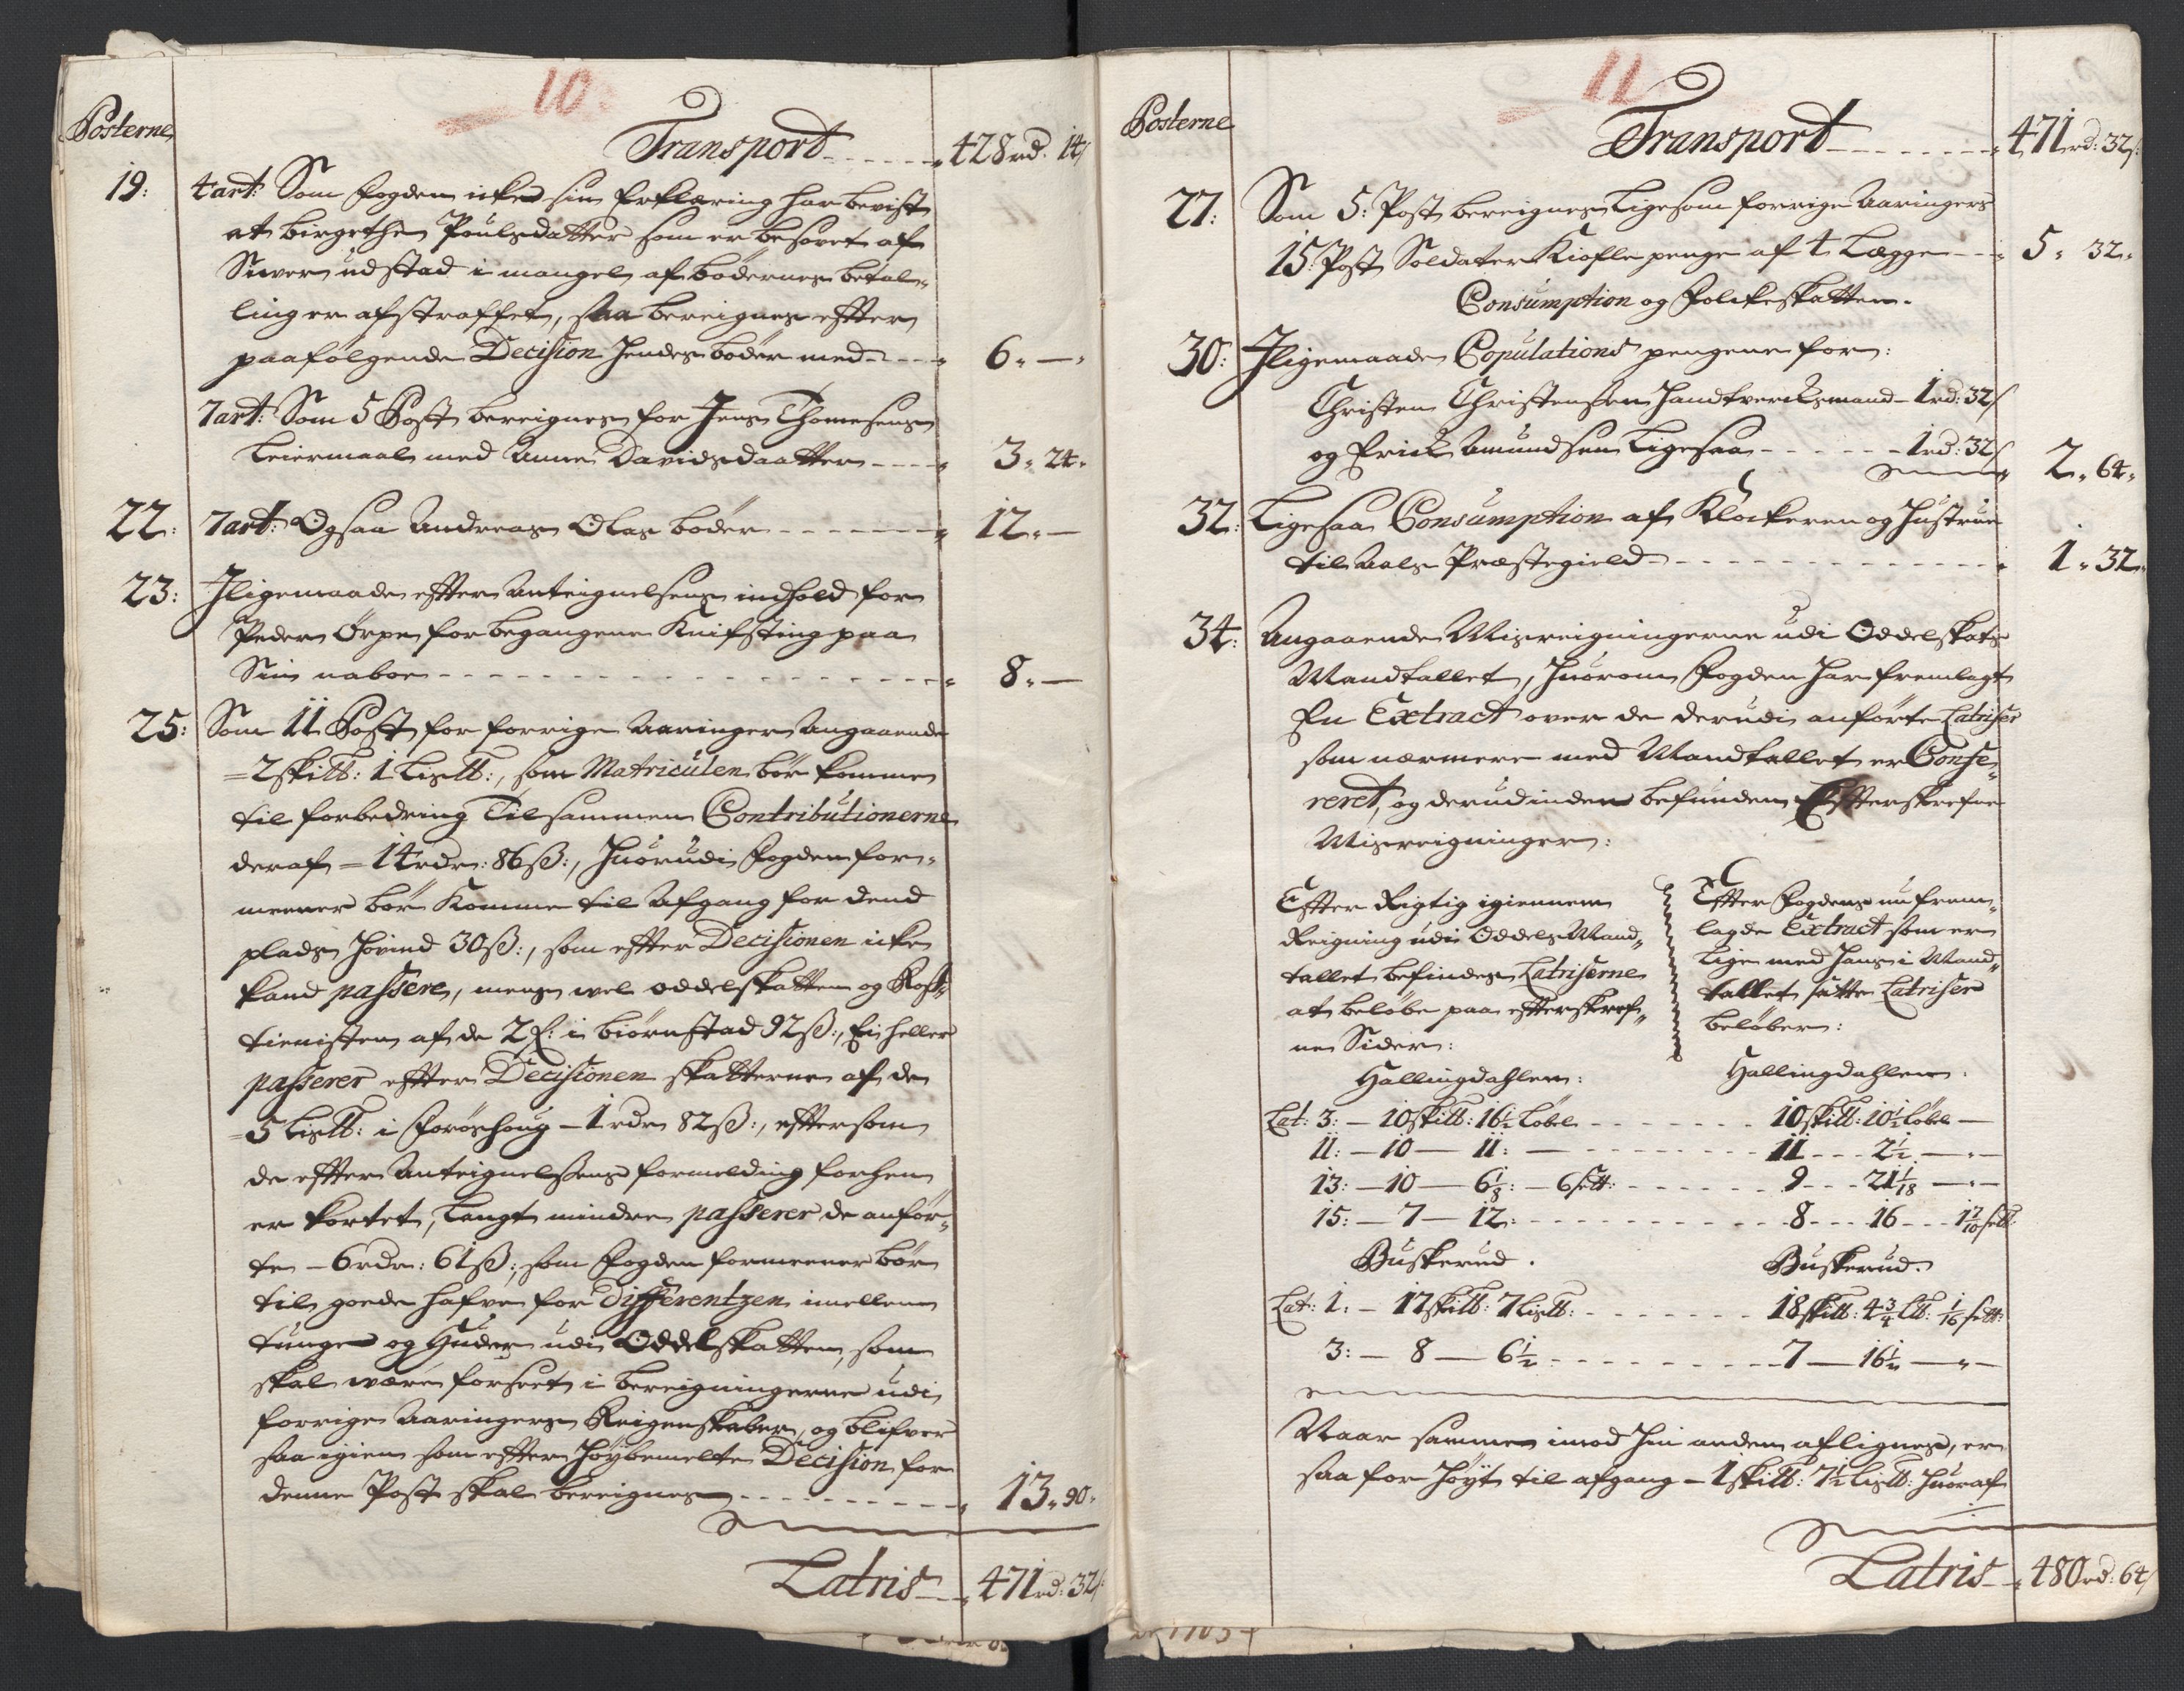 10.
Posterne
Transport - - - - - 428 rd. 14 s
19: 4 art: Som Fogden icke sin Erklæring har bevist
at Birgethe Poulsdatter som er besovet af
Siver udstad i mangel af bødernes betal-
ling er afstraffet, saa bereignes effter
paafølgende Decision hendes bøder med - - - 6 " —
7 art: Som 5 Post bereignes for Jens Thomesens
Leiermaal med Anne Davidsdaatter - - - 3 " 24 "
22: 7 art: Ogsaa Andreas Olas bøder - - - - - - 12 " —
23: Jligemaade effter Anteignelsens indhold for
Peder Ørpen for begangene Knifsting paa
Sin naboe - - - - - - - - - - - - - - 8 " —
25: Som 11 Post for forrige Aaringer Angaaende
= 2 skitt: 1 Listt:, som Matriculen bør komme
til forbedring Tilsammen Contributionerne
deraf = 14 rdr: 86 ß:, huorudi Fogden for-
meener bør Komme til Afgang for dend
plads Hovind 30 ß:, som effter Decisionen icke
kand passere, mens vel oddelskatten og Ross-
tienisten af de 2 f: i Biørnstad 92 ß:, Ei heller
passerer effter Decisionen skatterne af de
= 5 Listt: i Forøshoug - 1 rdr 82 ß:, efftersom
de effter Anteignelsens formelding forhen
er kortet, langt mindre passerer de anfør-
te - 6 rdr: 61 ß:, som Fogden formeener bør
til goede hafve for Differentzen imellem
tunge og Huder udi Oddelskatten, som
skal være forseet i bereigningerne udi
forrige Aaringers Reigenskaber, og blifver
saa igien som effter høybemelte Decision for
denne Post skal bereignes - - - - - - - - 13 " 90 "
Latris - - 471 rd: 32 s:
11
Posterne
Transport - - - - - - 471 rd: 32 s:
27: Som 5: Post bereignes Ligesom forrige Aaringers
15: Post Soldater Kiofle penge af 4 Lægge - - 5 " 32 "
Consumption og Folckeskatten.
30: Jligemaade Copulations pengene for:
Christen Christensen Handtvercksmand - 1 rd: 32 s
og Erick Amundsen Ligesaa - - - - - 1 rd: 32 s 2 " 64 "
32: Ligesaa Consumption af Klockeren og hustrue
til Aals Præstegield - - - - - - - - - - - 1 " 32 "
34: Angaaende Misreigningerne udi Oddelskats
Mandtallet, huorom Fogden har fremlagt
En Extract over de derudi anførte Latriser
som nærmere med Mandtallet er Confe-
reret, og derudinden befunden Effterskrefne
Misreigninger:
Effter Rigtig igiennem
Reigning udi Oddels Mand-
tallet befindes Latriserne
at beløbe paa effterskref-
ne Sider:
Hallingdahlen:
Effter Fogdens nu frem-
lagde Extract som er
lige med hans i Mand-
tallet satte Latriser
beløber:
Hallingdahlen:
Lat: 3: — 10 skitt: 16½ Løbe - - - - - - 10 skitt: 10½ Løbe —
11: — 10 — 11: — - - - - - - - 11 - - - 2½ — " —
13: — 10 — 6⅛: — 6 sett: - - - - - - 9 - - - 21 1/18 — " —
15: — 7 — 12: - - - - - - - - - - - 8 - - - 16 - - -
Buskerud. Buskerud.
Lat: 1: — 17 skitt: 7 Listt: - - - - - - 18 skitt: 4¾ Ltt: 1/16 sett:
3: — 8 — 6½ - - - - - - - - - 7 — 16½ — " —
Naar samme imod hin anden aflignes, er
saa for høyt til afgang - 1 skitt: 7½ Listt: huoraf
Latris - - 480 rd: 64 s
1703